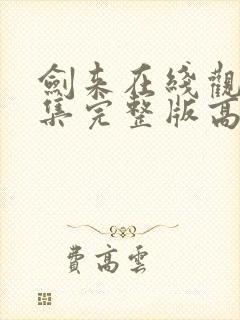 劍来在綫觀
集完整版高
費高雲